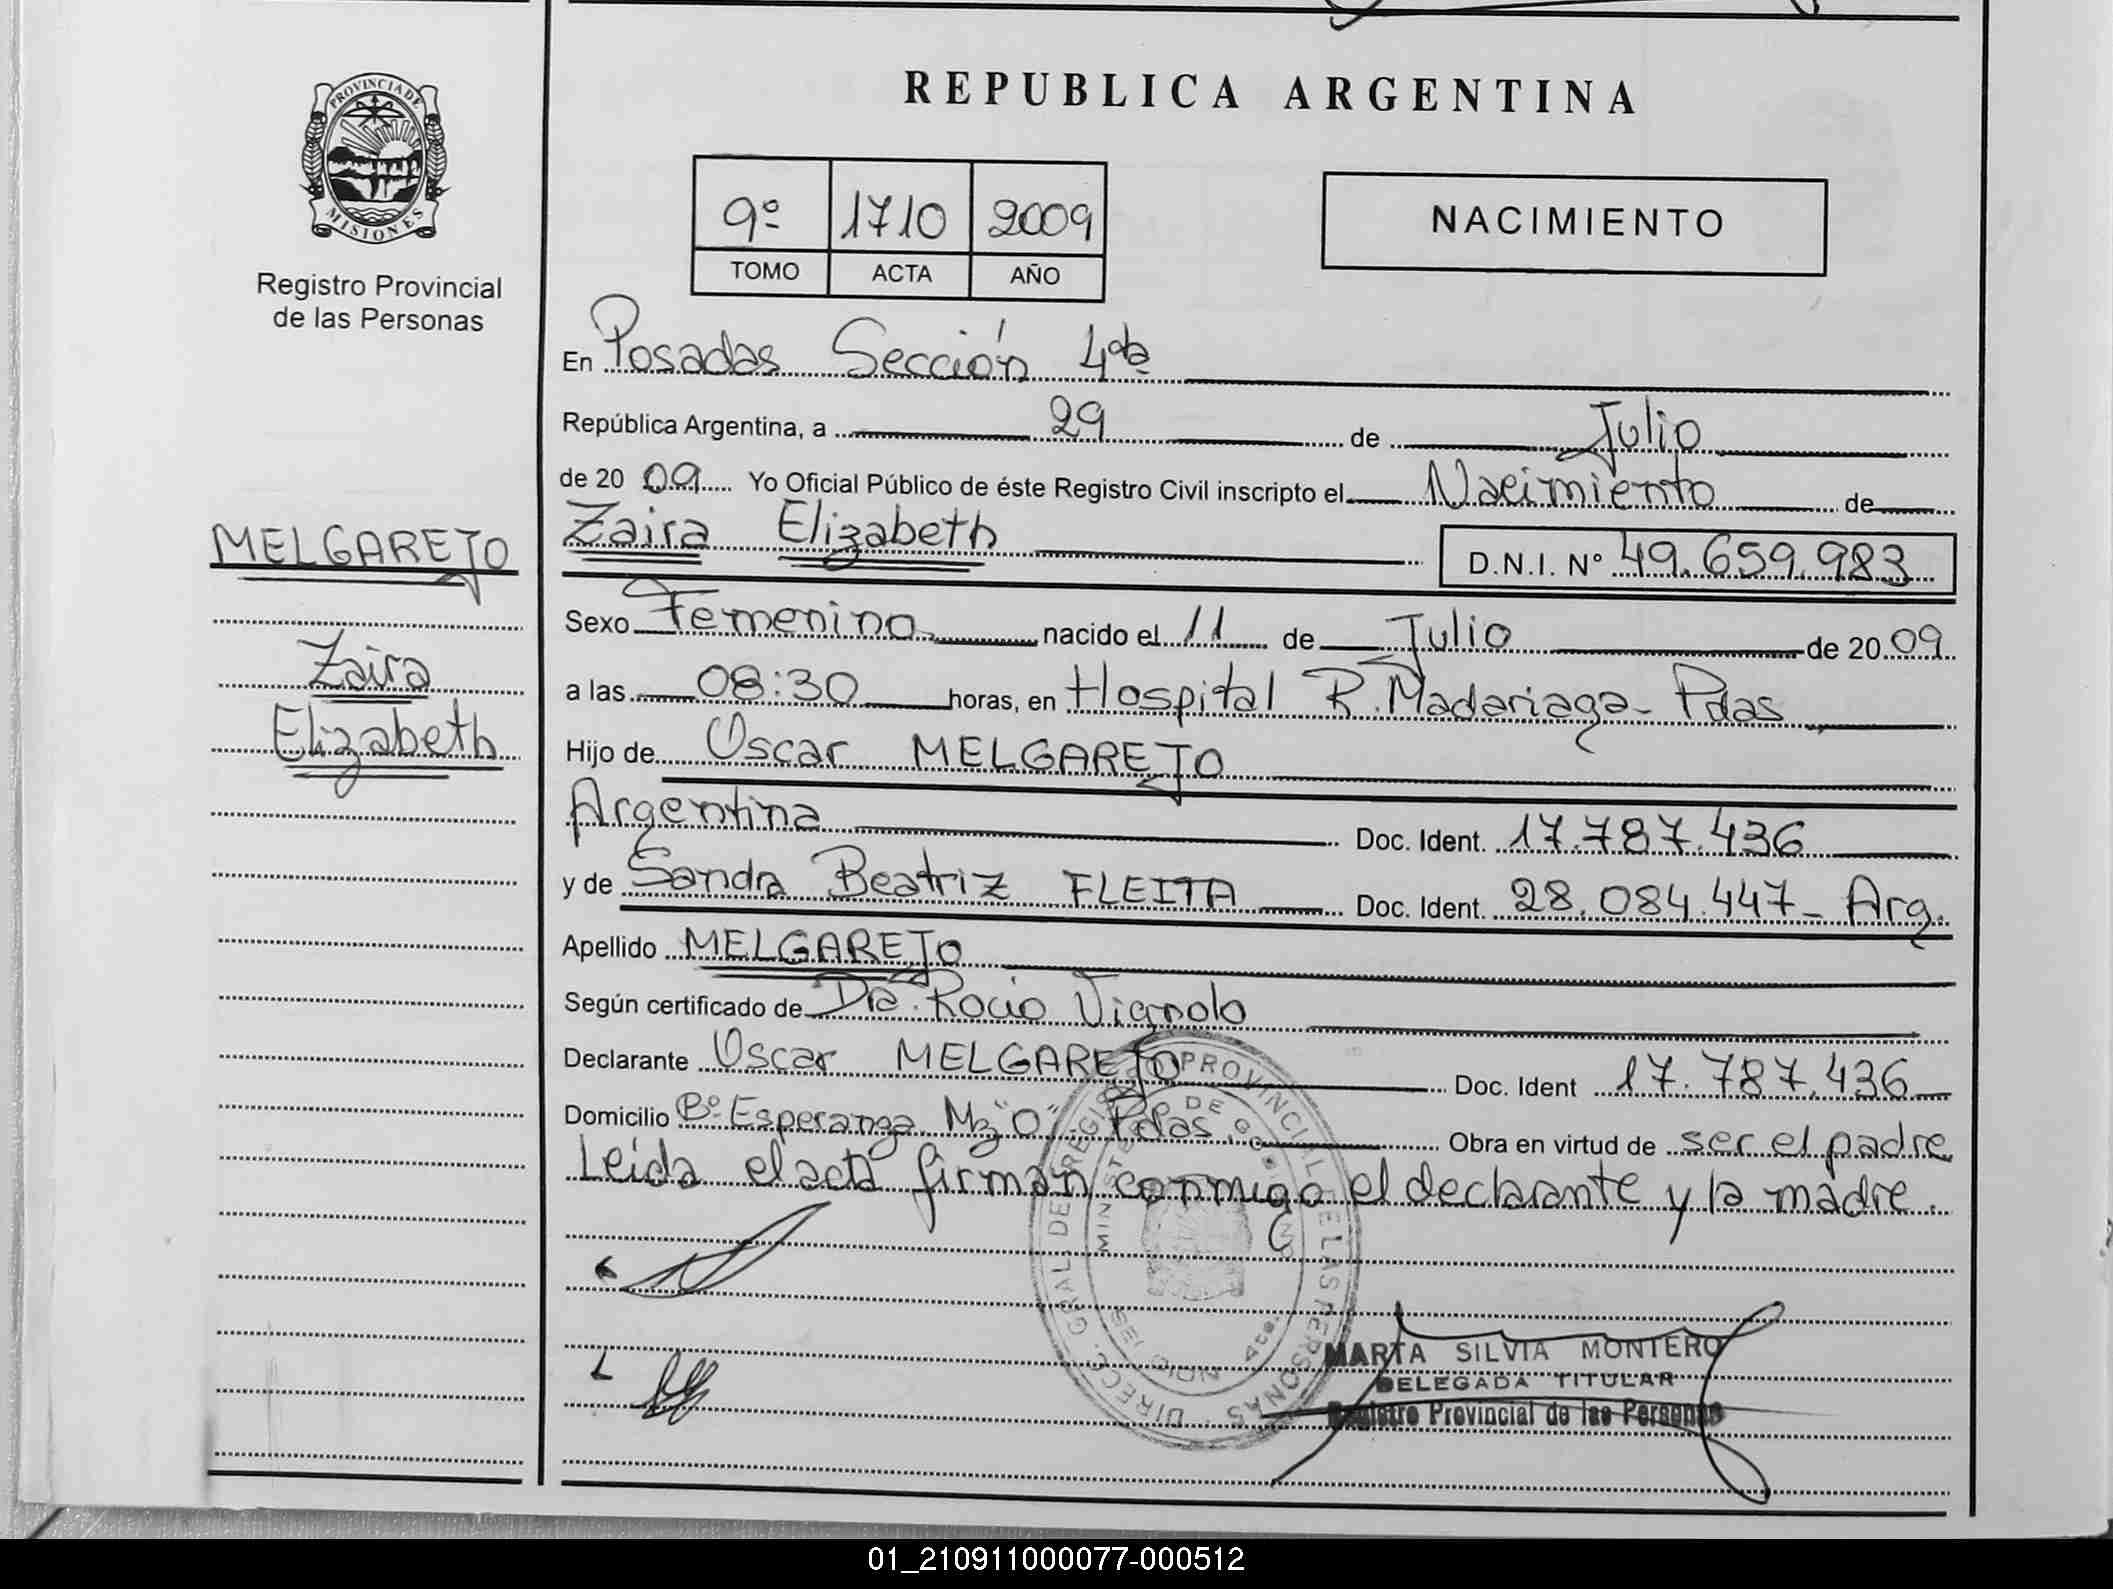 REPUBLICA ARGENTINA
PROVINCIA DE
MISIONES
Registro Provincial
de las Personas
9º 1710 2009
TOMO ACTA AÑO
NACIMIENTO
En Posadas Sección 4da
República Argentina, a 29 de Julio
de 20 09 Yo Oficial Público de éste Registro Civil inscripto el Nacimiento de
MELGAREJO
Zaira Elizabeth D.N.I. Nº 49.659.983
Sexo Femenino nacido el 11 de Julio de 20 09
Zaira
a las 08:30 horas, en Hospital R. Madariaga - Pdas
Elizabeth
Hijo de Oscar MELGAREJO
Argentina Doc. Ident. 17.787.436
y de Sandra Beatriz FLEITA Doc. Ident. 28.084.447- Arg.
Apellido MELGAREJO
Según certificado de Dra. Rocio Vignolo
Declarante Oscar MELGAREJO Doc. Ident 17.787.436
Domicilio Bº Esperanza Mz "O" - Pdas. Obra en virtud de ser el padre
Leida el acta firman conmigo el declarante y la madre.
DIRECC. GRAL. DE REGISTRO PROVINCIAL DE LAS PERSONAS
MINISTERIO DE GOBIERNO
4ta.
MARTA SILVIA MONTERO
DELEGADA TITULAR
Registro Provincial de las Personas
01_210911000077-000512